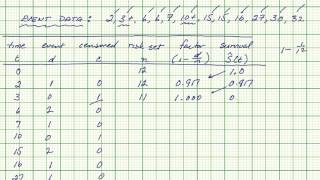 EVENT DATA: 2, 3+, 6, 6, 7, 10+, 15, 15, 16, 27, 30, 32
time event censored risk set factor survival 1 - 1/12
t d c n (1 - d/n) Ŝ(t)
0 12 1.0
2 1 0 12 0.917 0.917
3 0 1 11 1.000 0
6 2 0
7 1 0
10 0 1
15 2 0
16 1 0
27 1 0